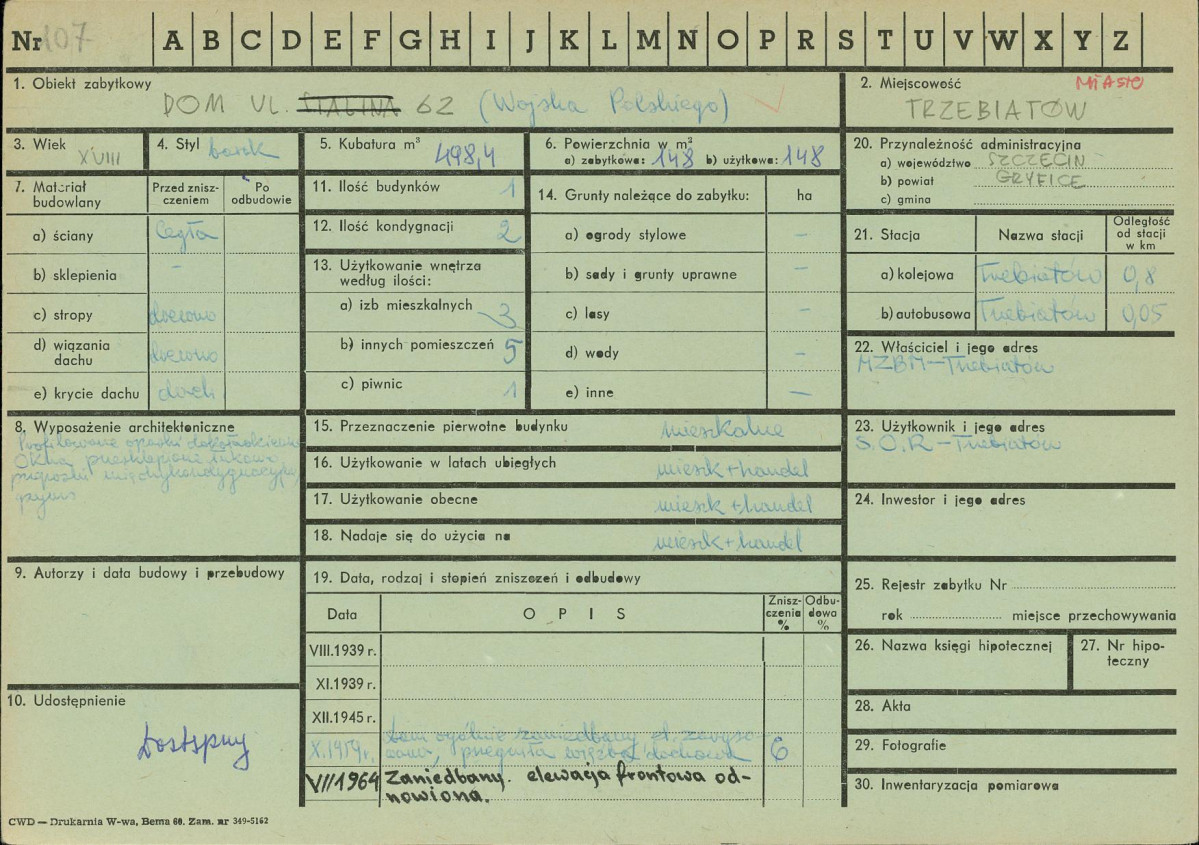 Nr 107 A B C D E F G H I J K L M N O P R S T U V W X Y Z
1. Obiekt zabytkowy
DOM UL. STALINA 62 (Wojska Polskiego)
2. Miejscowość MIASTO
TRZEBIATÓW
3. Wiek XVIII
4. Styl barok
5. Kubatura m³ 498,4
6. Powierzchnia w m²
a) zabytkowa: 148 b) użytkowa: 148
20. Przynależność administracyjna
a) województwo SZCZECIN
b) powiat GRYFICE
c) gmina
7. Materiał budowlany
Przed zniszczeniem
Po odbudowie
a) ściany cegła
b) sklepienia –
c) stropy drewno
d) wiązania dachu drewno
e) krycie dachu dach.
11. Ilość budynków 1
12. Ilość kondygnacji 2
13. Użytkowanie wnętrza
według ilości:
a) izb mieszkalnych 3
b) innych pomieszczeń 5
c) piwnic 1
14. Grunty należące do zabytku: ha
a) ogrody stylowe –
b) sady i grunty uprawne –
c) lasy –
d) wody –
e) inne —
21. Stacja
Nazwa stacji
Odległość od stacji w km
a) kolejowa Trzebiatów 0,8
b) autobusowa Trzebiatów 0,05
22. Właściciel i jego adres
MZBM – Trzebiatów
8. Wyposażenie architektoniczne
Profilowane opaski dokoła okienne
Okna przesklepione łukowo
międzykondygnacyjny
gzyms
15. Przeznaczenie pierwotne budynku mieszkalne
16. Użytkowanie w latach ubiegłych mieszk + handel
17. Użytkowanie obecne mieszk + handel
18. Nadaje się do użycia na mieszk + handel
23. Użytkownik i jego adres
S.O.R – Trzebiatów
24. Inwestor i jego adres
9. Autorzy i data budowy i przebudowy
10. Udostępnienie
Dostępny
19. Data, rodzaj i stopień zniszczeń i odbudowy
Data OPIS Zniszczenia % Odbudowa %
VIII.1939 r.
XI.1939 r.
XII.1945 r.
X.1959r. Dom ogólnie zaniedbany st. zaryso-
wana, przegniła więźba dachowa 6
VII/1964 Zaniedbany. elewacja frontowa od-
nowiona.
25. Rejestr zabytku Nr
rok miejsce przechowywania
26. Nazwa księgi hipotecznej
27. Nr hipoteczny
28. Akta
29. Fotografie
30. Inwentaryzacja pomiarowa
CWD — Drukarnia W-wa, Bema 60. Zam. nr 349-5162